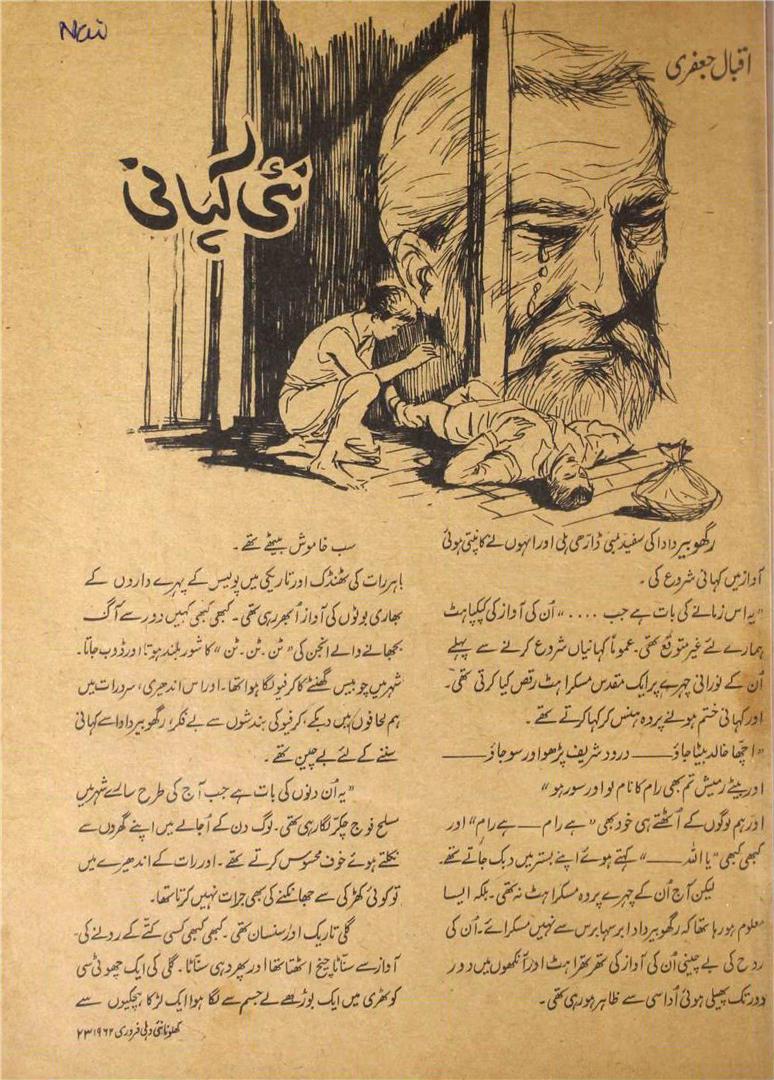 Nai
اقبال جعفری
نئی کہانی
رگھوبیر دادا کی سفید لمبی ڈاڑھی ہلی اور انہوں نے کانپتی ہوئی
آواز میں کہانی شروع کی ۔
"یہ اس زمانے کی بات ہے جب ...." اُن کی آواز کی کپکپاہٹ
ہمارے لئے غیر متوقع تھی۔ عموماً کہانیاں شروع کرنے سے پہلے
اُن کے نورانی چہرے پر ایک مقدس مسکراہٹ رقص کیا کرتی تھی۔
اور کہانی ختم ہونے پر وہ ہنس کر کہا کرتے تھے ۔
"اچھا خالد بیٹا جاؤ —— درود شریف پڑھو اور سو جاؤ ——
اور بیٹے رمیش تم بھی رام کا نام لو اور سو رہو"
اور ہم لوگوں کے اُٹھتے ہی خود بھی "ہے رام — ہے رام" اور
کبھی کبھی "یا اللہ ——" کہتے ہوئے اپنے بستر میں دبک جاتے تھے۔
لیکن آج اُن کے چہرے پر وہ مسکراہٹ نہ تھی۔ بلکہ ایسا
معلوم ہو رہا تھا کہ رگھوبیر دادا برسہا برس سے نہیں مسکرائے۔ اُن کی
روح کی بے چینی اُن کی آواز کی تھرتھراہٹ اور آنکھوں میں دور
دور تک پھیلی ہوئی اُداسی سے ظاہر ہو رہی تھی۔
سب خاموش بیٹھے تھے ۔
باہر رات کی ٹھنڈک اور تاریکی میں پولیس کے پہرے داروں کے
بھاری بوٹوں کی آواز اُبھر رہی تھی۔ کبھی کبھی کہیں دور سے آگ
بجھانے والے انجن کی "ٹن ۔ٹن ۔ٹن" کا شور بلند ہوتا اور ڈوب جاتا۔
شہر میں چوبیس گھنٹے کا کرفیو لگا ہوا تھا۔ اور اس اندھیری، سرد رات میں
ہم لحافوں میں دبکے، کرفیو کی بندشوں سے بے فکر، رگھوبیر دادا سے کہانی
سننے کے لئے بے چین تھے ۔
"یہ اُن دنوں کی بات ہے جب آج کی طرح سارے شہر میں
مسلح فوج چکر لگا رہی تھی۔ لوگ دن کے اُجالے میں اپنے گھروں سے
نکلتے ہوئے خوف محسوس کرتے تھے ۔ اور رات کے اندھیرے میں
تو کوئی کھڑکی سے جھانکنے کی بھی جرات نہیں کرتا تھا۔
گلی تاریک اور سنسان تھی۔ کبھی کبھی کسی کتّے کے رونے کی۔
آواز سے سنّاٹا چیخ اٹھتا تھا اور پھر وہی سنّاٹا۔ گلی کی ایک چھوٹی سی
کوٹھری میں ایک بوڑھے کے جسم سے لگا ہوا ایک لڑکا ہچکیوں سے
کھلونا نئی دہلی فروری ۱۹۶۲ ۲۳